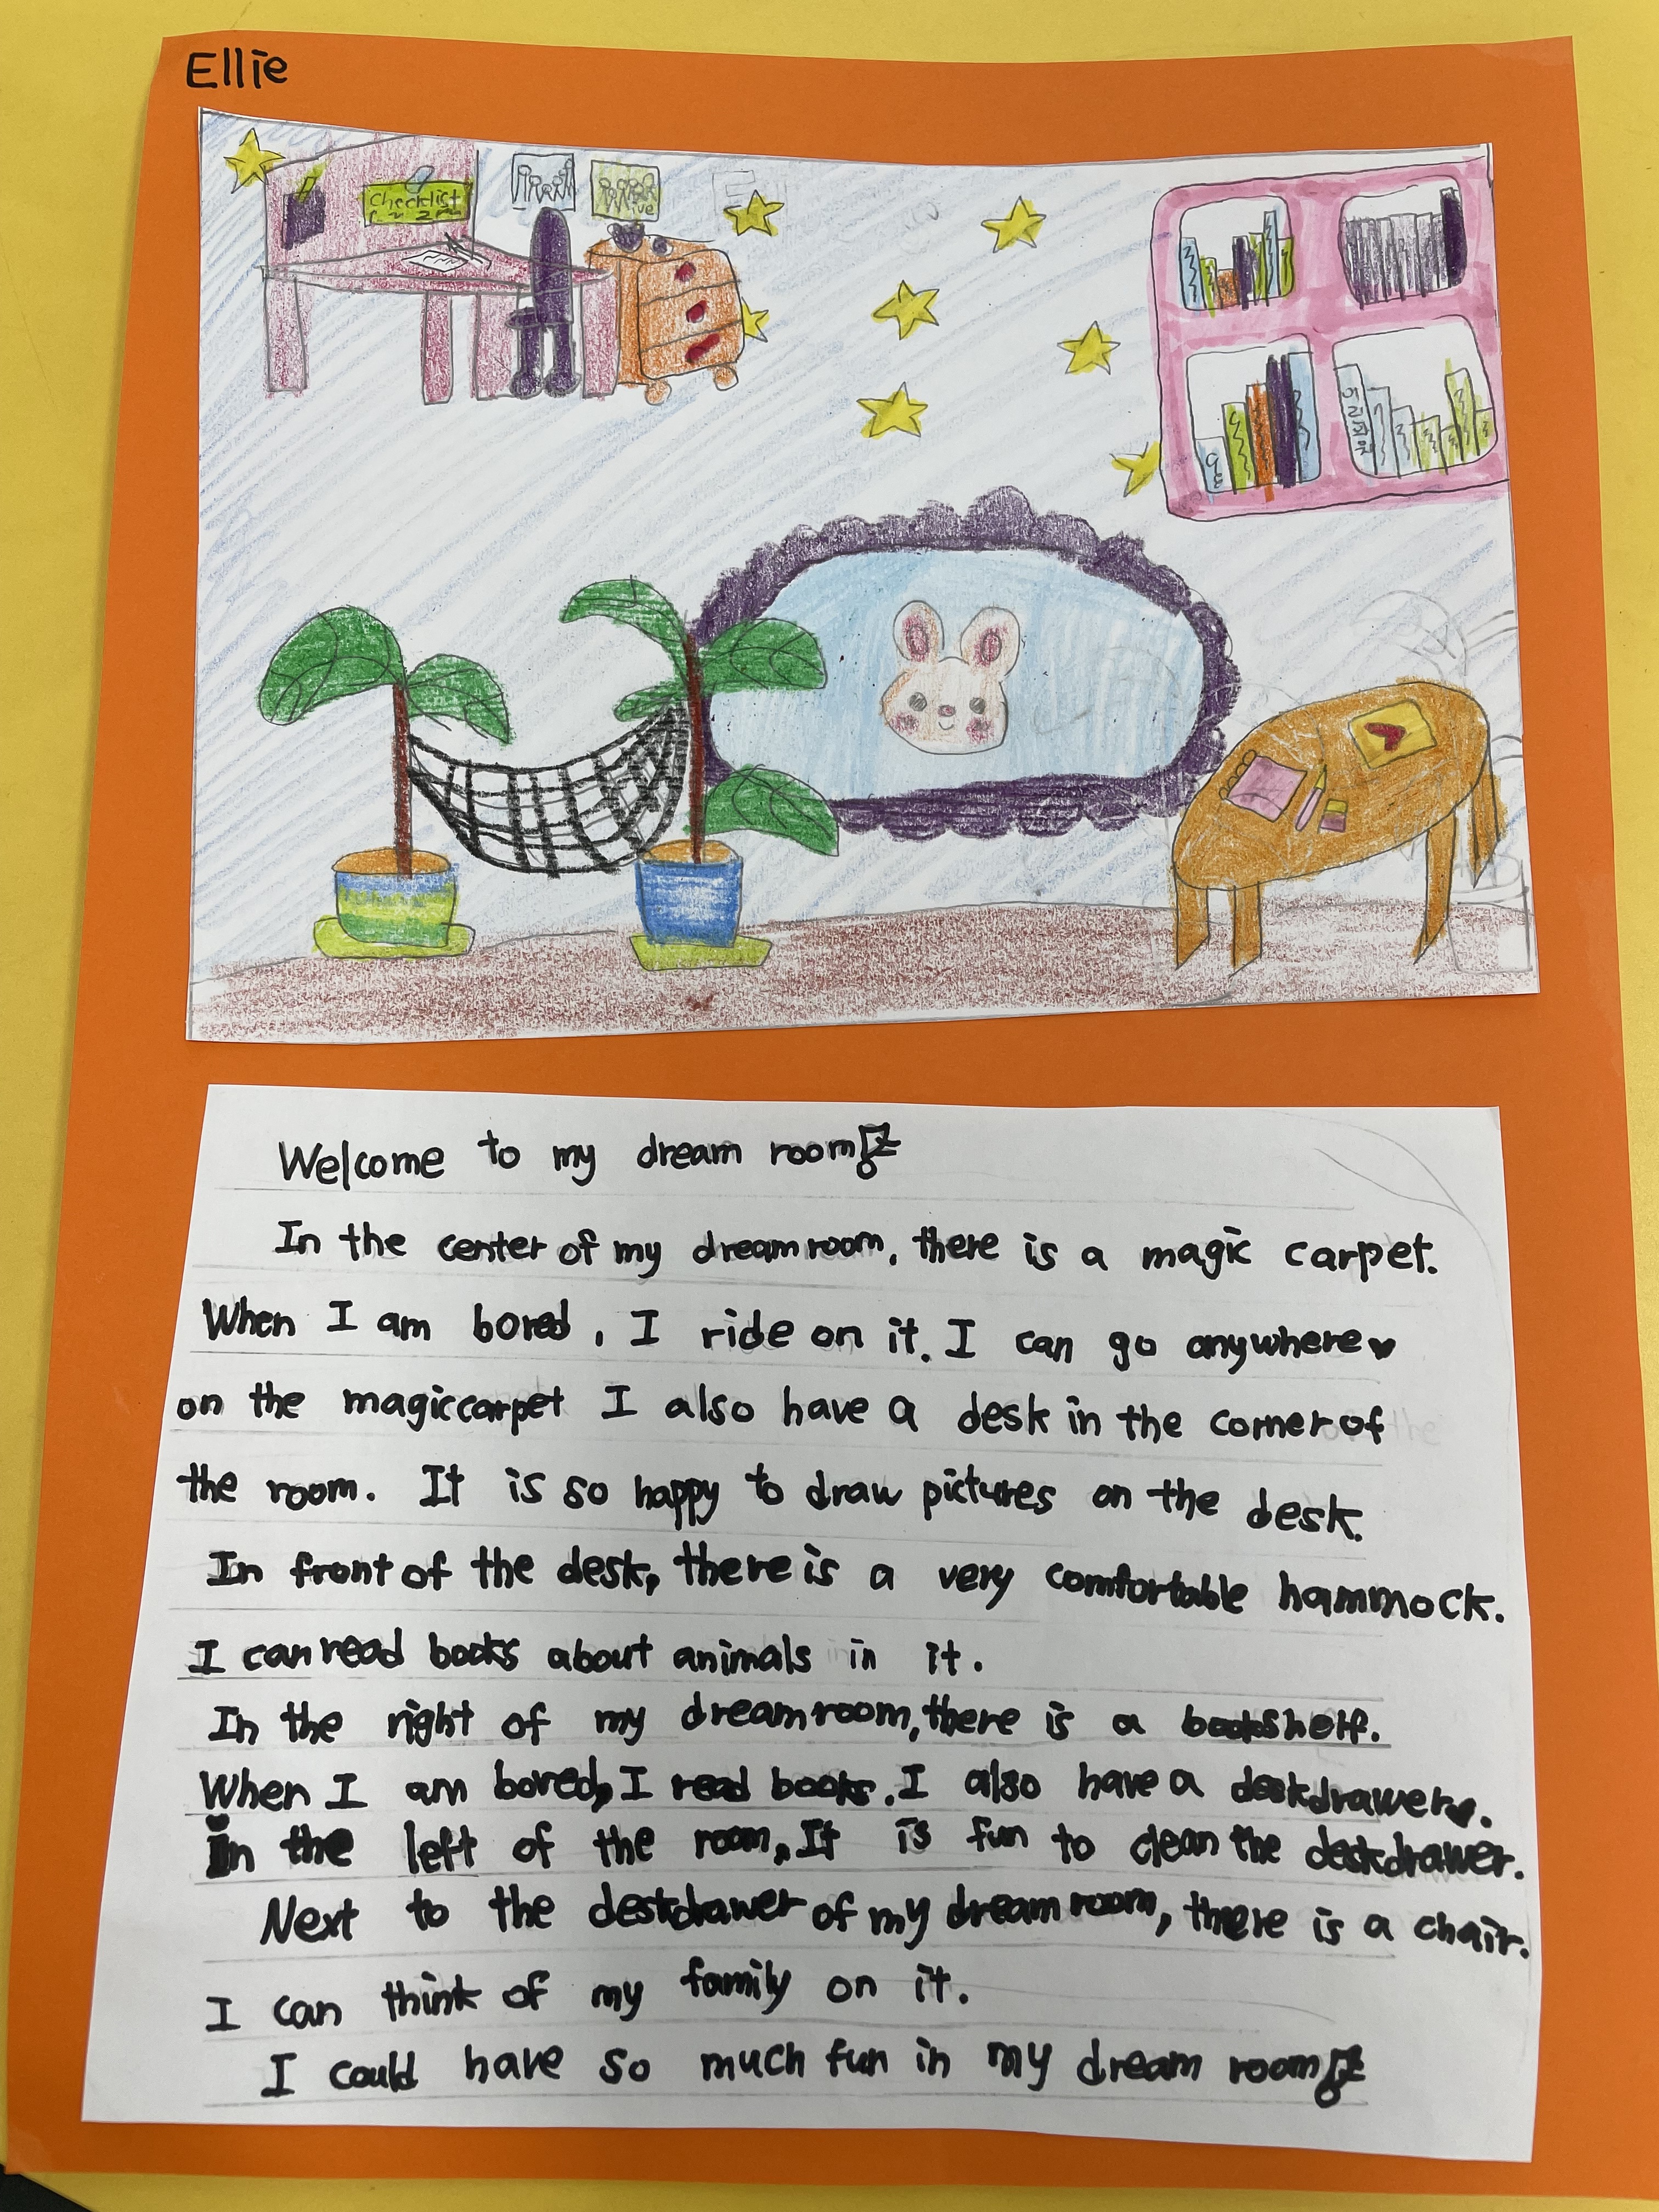 Ellie
Checklist
Welcome to my dream room
In the center of my dream room, there is a magic carpet.
When I am bored, I ride on it. I can go anywhere♥
on the magic carpet I also have a desk in the corner of
the room. It is so happy to draw pictures on the desk.
In front of the desk, there is a very comfortable hammock.
I can read books about animals in it.
In the right of my dream room, there is a bookshelf.
When I am bored, I read books. I also have a deskdrawer♥.
in the left of the room, It is fun to clean the deskdrawer.
Next to the deskdrawer of my dream room, there is a chair.
I can think of my family on it.
I could have so much fun in my dream room